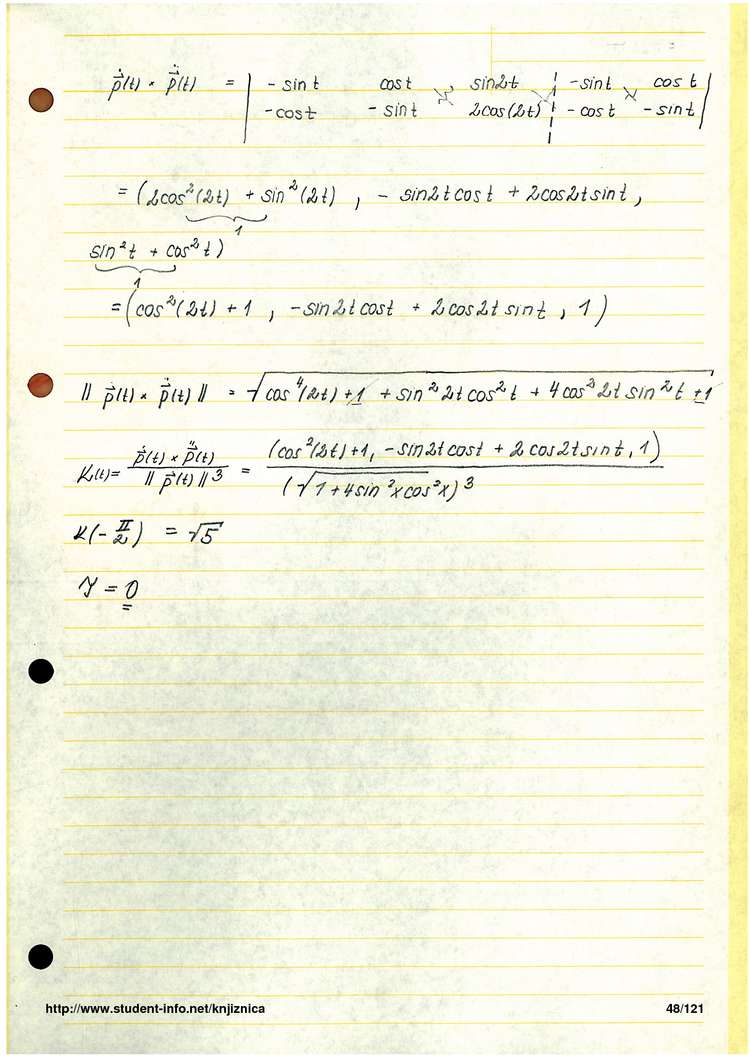 ṗ⃗(t) × ṗ⃗(t) = | -sin t cos t sin2t ¦ -sin t cos t |
| -cos t -sin t 2cos(2t) ¦ -cos t -sin t |
= (2cos²(2t) + sin²(2t) , - sin2t cos t + 2cos2t sin t ,
1
sin²t + cos²t)
1
= (cos²(2t) + 1 , -sin2t cos t + 2 cos2t sin t , 1)
|| p⃗(t) × ṗ⃗(t) || = √(cos⁴(2t) + 1 + sin²2t cos²t + 4 cos²2t sin²t + 1)
K(t) = ṗ⃗(t) × p̈⃗(t) / || p⃗(t) ||³ = (cos²(2t) + 1, -sin2t cos t + 2 cos2t sin t, 1) / (√(1 + 4sin²x cos²x))³
K(-π/2) = √5
γ = 0
http://www.student-info.net/knjiznica 48/121